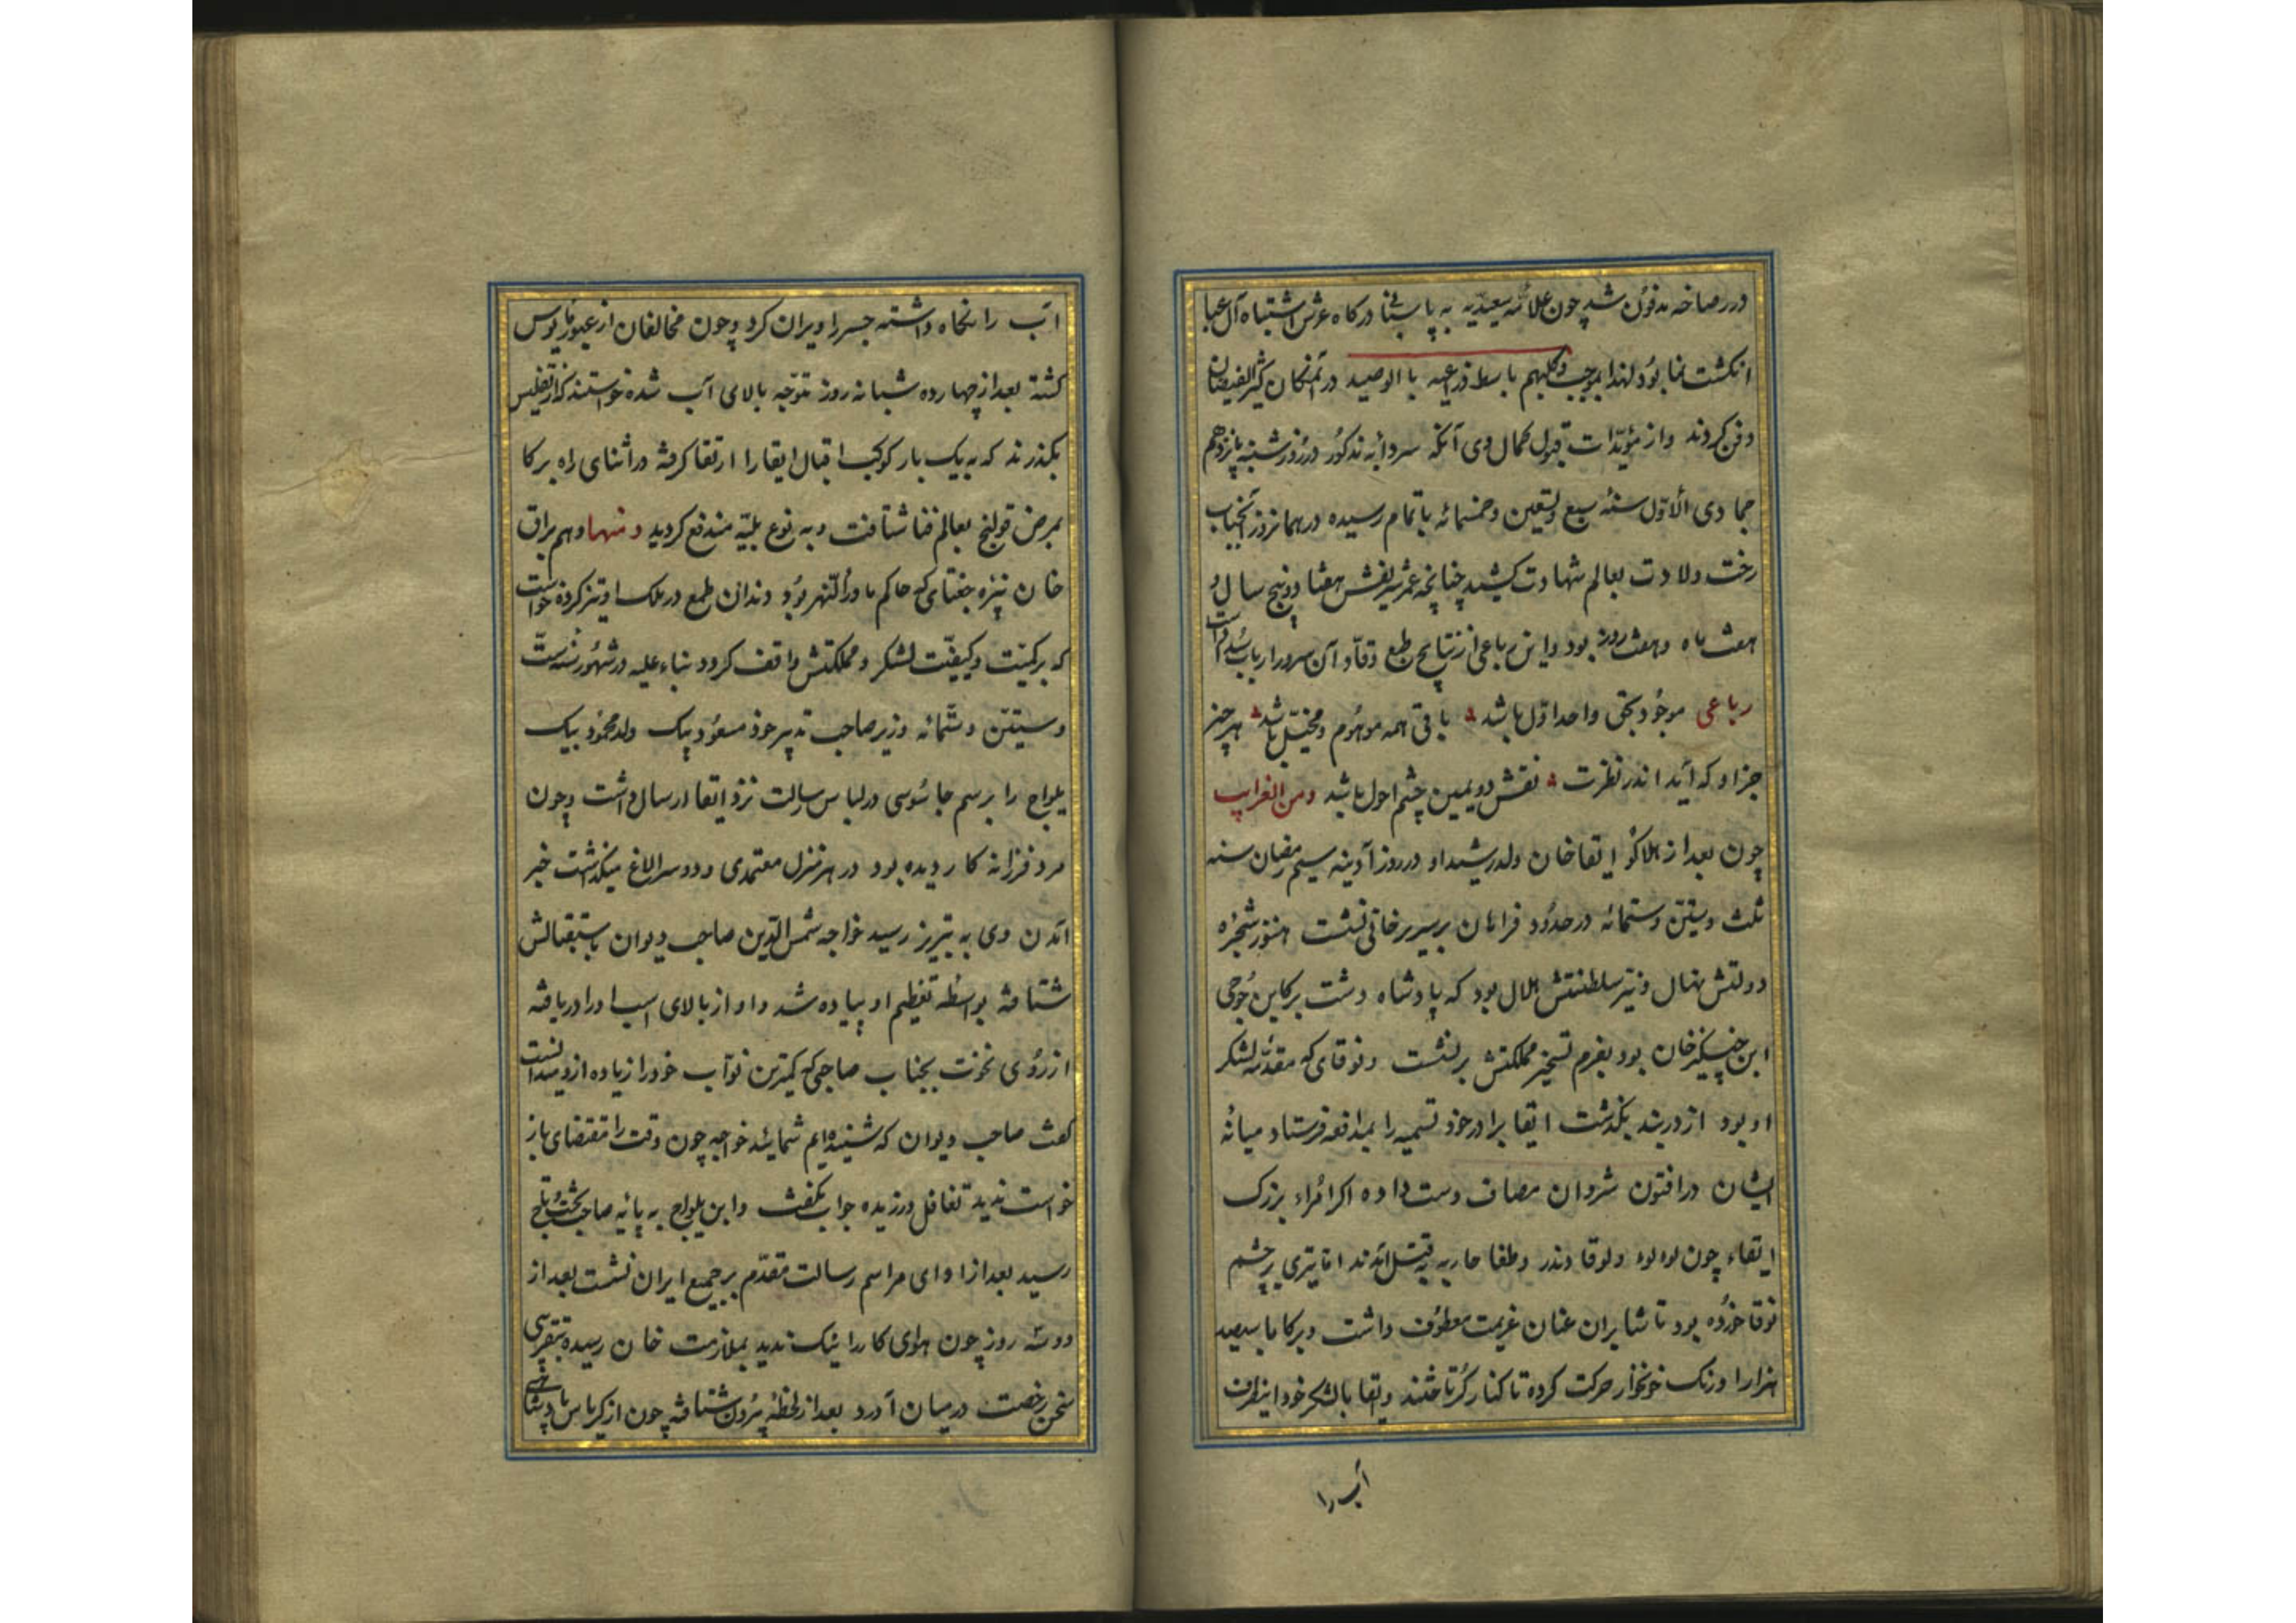 در رصاخه مدفون شد چون علامه سعیدیه به پاسبانی درکاه عرش اشتباه آل عبا
انکشت نما بود لهذا بموجب وکلبهم باسط ذراعیه بالوصید در آنمکان کثیر الفیضان
دفن کردند و از مؤیدات قبول کمال وی آنکه سردابه مذکور در روز شنبه پانزدهم
جمادی الاول سنه سبع وتسعین وخمسمائه باتمام رسیده در همانروز آنجناب
رخت ولادت بعالم شهادت کشید چنانچه عمر شریفش هفتاد و پنج سال و
هفت ماه و هفت روز بود و این رباعی از نتایج طبع وقاد آن سرور ارباب
رباعی موجود بحق واحد اول باشد باقی همه موهوم و مخیل باشد هر چیز
جز او که آید اندر نظرت نقش دویمین چشم احول باشد ومن الغرایب
چون بعد از هلاکو ابقا خان ولد رشید او در روز آدینه سیم رمضان سنه
ثلث وستین وستمائه در حدود فراهان بر سریر خانی نشست هنوز شجره
دولتش نهال و نیر سلطنتش هلال بود که پادشاه دشت برکا بن جوجی
ابن چنیکیز خان بود بعزم تسخیر مملکتش برنشست ونوقای که مقدمه لشکر
او بود از دربند بکذشت ابقا برادر خود تسمیه را بمدافعه فرستاد میانه
ایشان در افتون شروان مصاف دست داده اکر امراء بزرک
ابقاء چون لوه لوه ولوقا وندر وطغا حاربه بقتل آمدند اما تیری بر چشم
نوقا خورده بود تا شابران عنان عزیمت معطوف داشت و برکا با سیصد
هزار اوزنک خونخوار حرکت کرده تا کنار کر تاختند وابقا با لشکر خود اینطرف
آب را
آب را نکاه داشته جسر را ویران کرد و چون مخالفان از عبور مایوس
کشته بعد از چهارده شبانه روز متوجه بالای آب شده خواستند که از تفلیس
بکذرند که به یک بار کوکب اقبال ابقا را ارتقا کرفته در اثنای راه برکا
بمرض قولنج بعالم فنا شتافت و به نوع بلیه مندفع کردید ومنها وهم براق
خان نبیره جغتای که حاکم ماوراءالنهر بود دندان طمع در ملک او تیز کرده خواست
که بر کمیت و کیفیت لشکر و مملکتش واقف کردد بناء علیه در شهور سنه ست
وستین وستمائه وزیر صاحب تدبیر خود مسعود بیک ولد محمود بیک
یلواج را برسم جاسوسی در لباس رسالت نزد ابقا ارسال داشت و چون
مرد فرزانه کار دیده بود در هر منزل معتمدی و دو سر الاغ میکذاشت خبر
آمدن وی به تبریز رسید خواجه شمس الدین صاحب دیوان باستقبالش
شتافته بواسطه تعظیم او پیاده شد و او از بالای اسب او را دریافته
از روی نخوت بجناب صاحبی که کمترین نواب خود را زیاده از و میدانست
کفت صاحب دیوان که شنیده ایم شمایید خواجه چون وقت را مقتضای باز
خواست ندید تغافل ورزیده جواب نکفت و ابن یلواج به پایه صاحب تخت و تاج
رسید بعد از ادای مراسم رسالت مقدم بر جمیع ایران نشست بعد از
دو سه روز چون هوای کار را نیک ندید بملازمت خان رسیده بتقریبی
سخن رخصت در میان آورد بعد از لحظه بیرون شتافته چون از کریاس پادشاهی